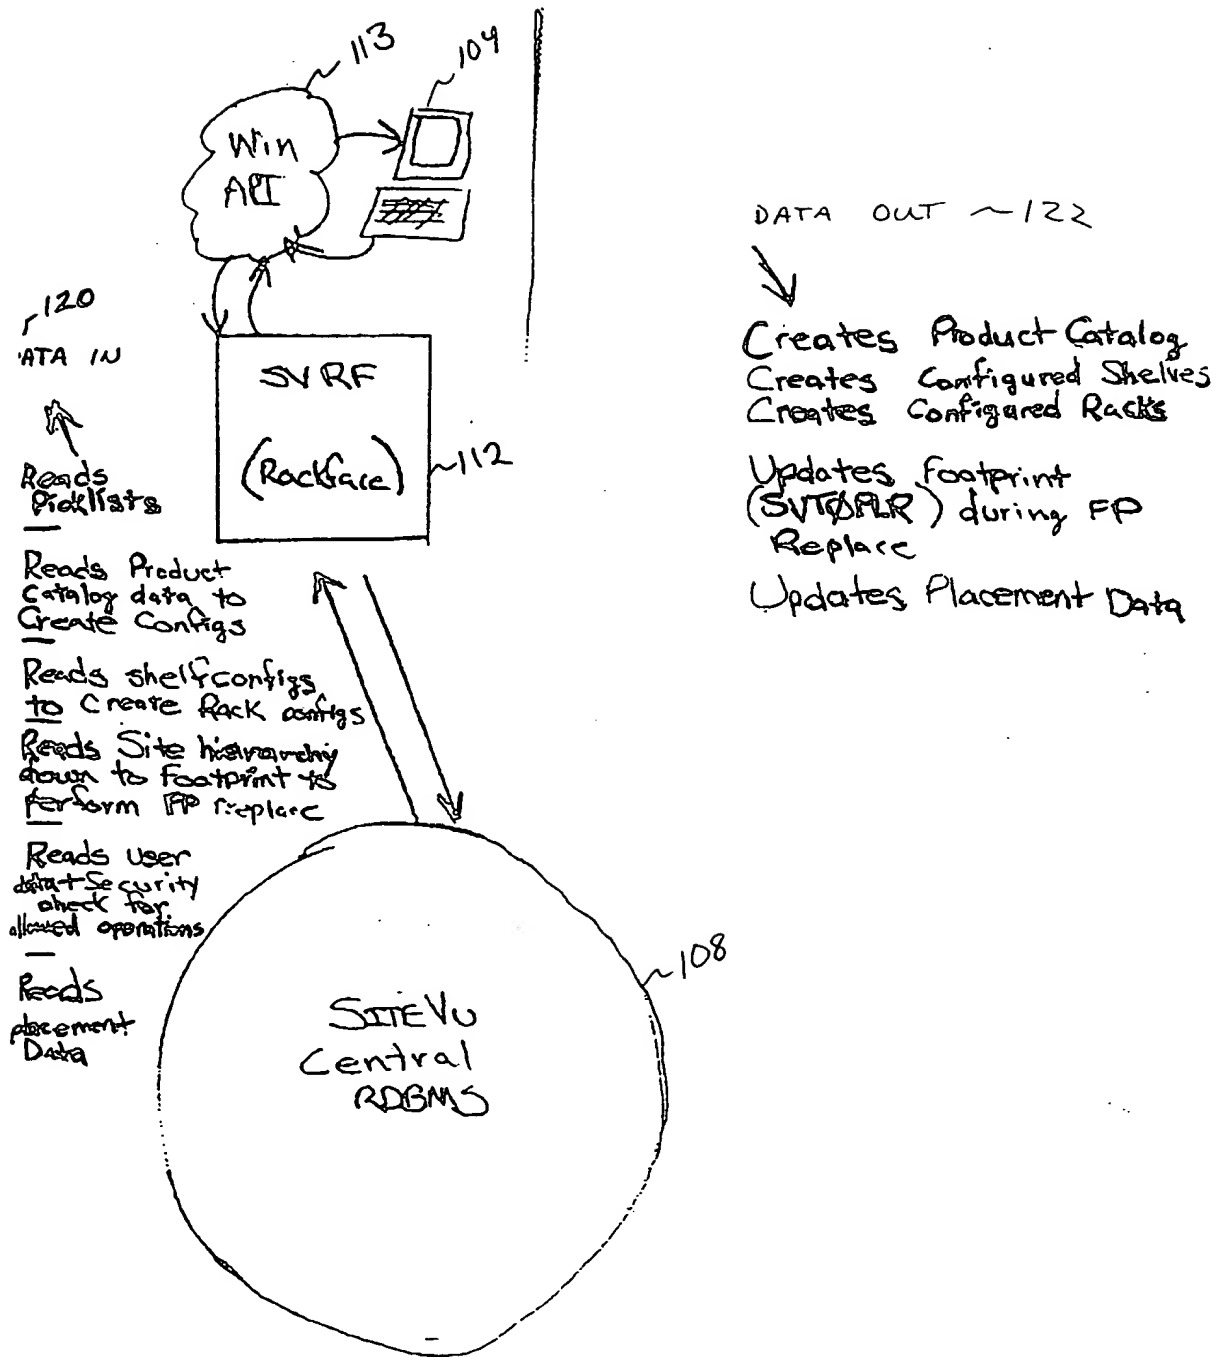 113
104
Win
API
120
ATA IN
SVRF
(Rackface)
112
Reads
Picklists
Reads Product
Catalog data to
Create Configs
Reads shelf configs
to Create Rack configs
Reads Site hierarchy
down to Footprint to
Perform FP replace
Reads user
data + Security
check for
allowed operations
Reads
placement
Data
SITEVU
Central
RDBMS
108
DATA OUT ~122
Creates Product Catalog
Creates Configured Shelves
Creates Configured Racks
Updates Footprint
(SVTØFLR) during FP
Replace
Updates Placement Data